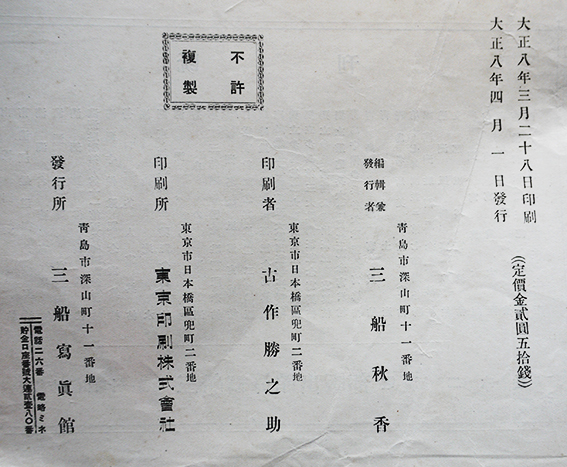 大正八年三月二十八日印刷
大正八年四月一日發行
(定價金貳圓五拾錢)
不許
複製
靑島市深山町十一番地
編輯兼
發行者
三船秋香
東京市日本橋區兜町二番地
印刷者
古作勝之助
東京市日本橋區兜町二番地
印刷所
東京印刷株式會社
靑島市深山町十一番地
發行所
三船寫眞館
電話二六番 電略ミネ
貯金口座番號大連貳壹八〇番